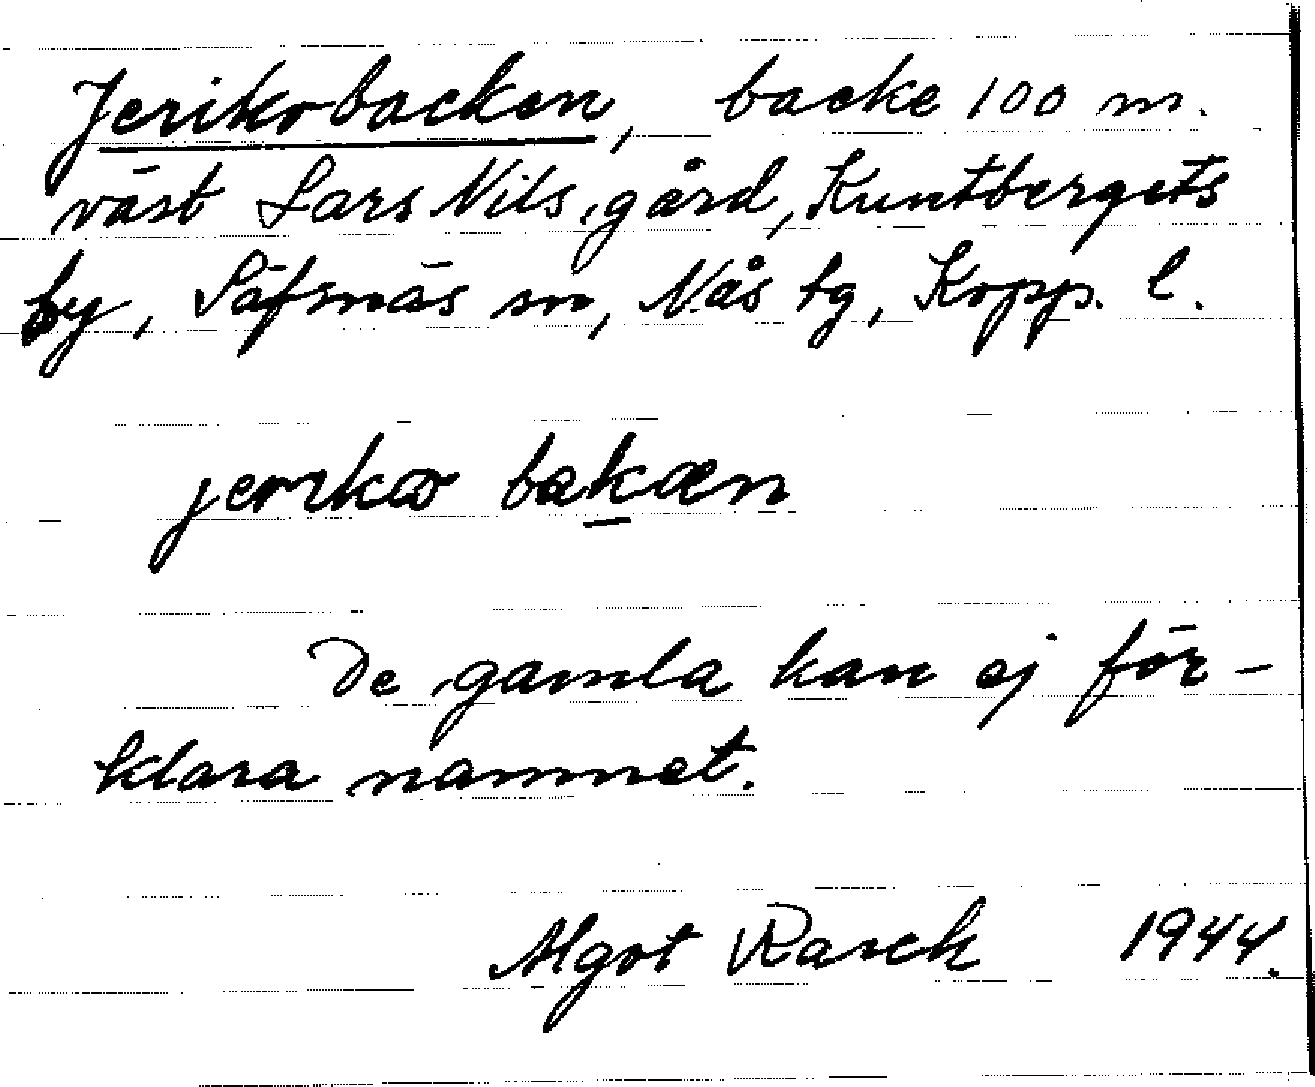 Jerikobacken, backe 100 m.
väst Lars Nils gård, Kuntbergets
by, Säfsnäs sn, Nås tg, Kopp. l.
jerikω bakæn
De gamla kan ej för-
klara namnet.
Algot Rarck 1944.